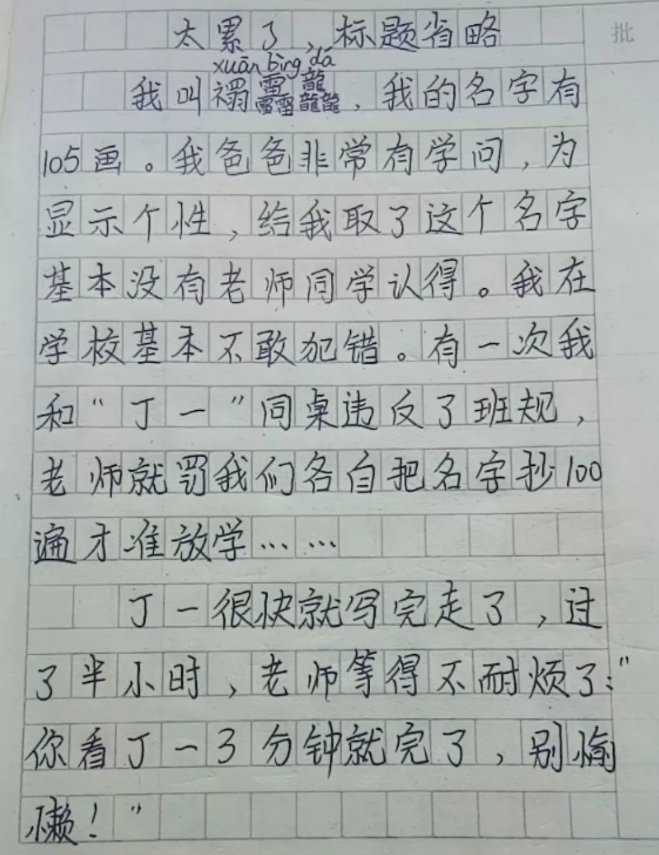 太累了，标题省略
xuān bìng dá
我叫禤靐龘，我的名字有
105画。我爸爸非常有学问，为
显示个性，给我取了这个名字
基本没有老师同学认得。我在
学校基本不敢犯错。有一次我
和“丁一”同桌违反了班规，
老师就罚我们各自把名字抄100
遍才准放学……
丁一很快就写完走了，过
了半小时，老师等得不耐烦了：“
你看丁一3分钟就完了，别偷
懒！”
批